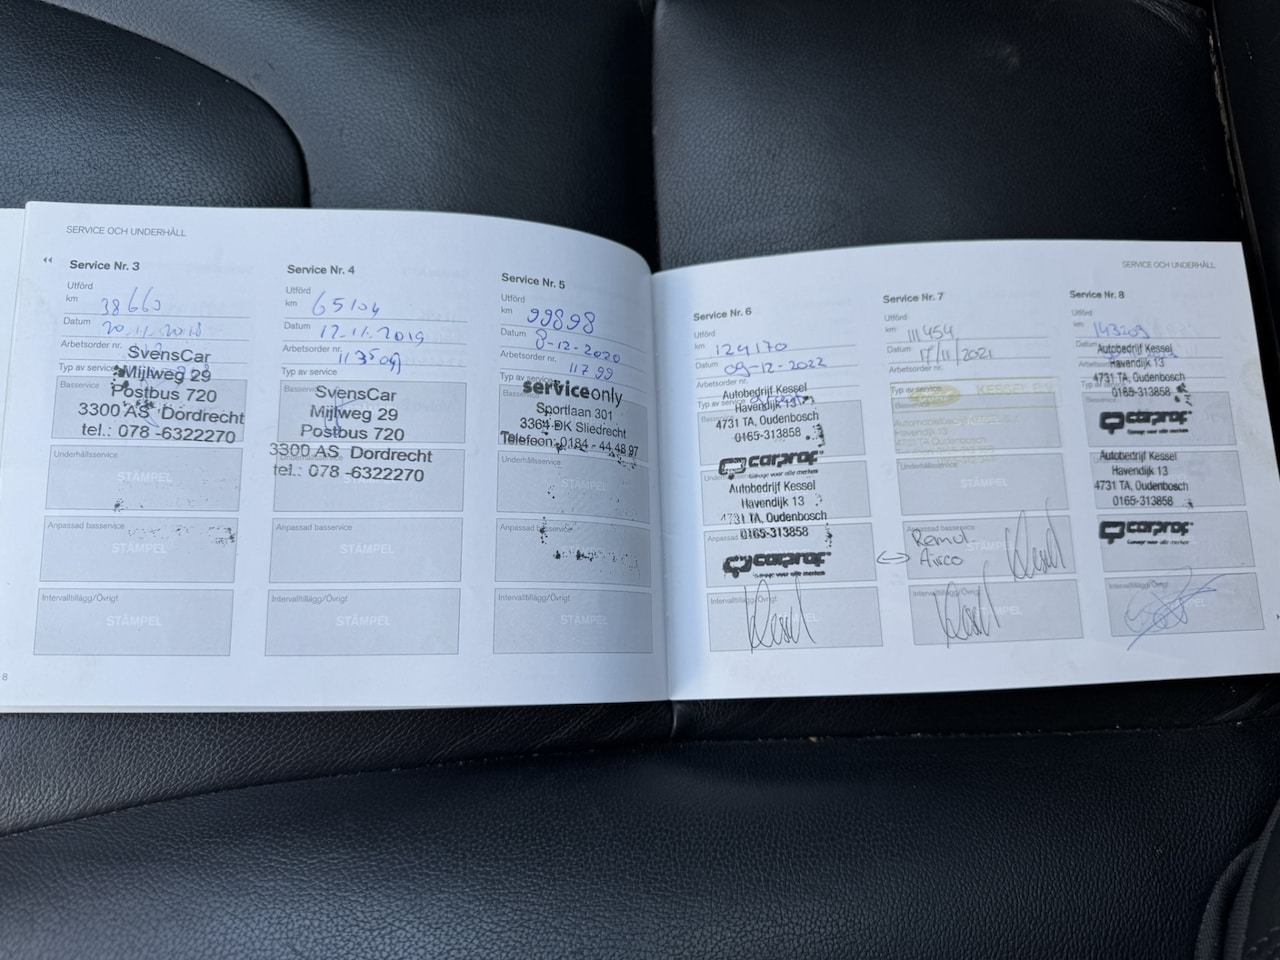 SERVICE OCH UNDERHÅLL
Service Nr. 3
Utförd
km 38660
Datum 20.11.2018
Arbetsorder nr.
Typ av service
SvensCar
Mijlweg 29
Postbus 720
3300 AS Dordrecht
tel.: 078 -6322270
Basservice
Underhållsservice
STÄMPEL
Anpassad basservice
STÄMPEL
Intervalltillägg/Övrigt
STÄMPEL
8
Service Nr. 4
Utförd
km 65104
Datum 12-11-2019
Arbetsorder nr.
Typ av service
Basservice
SvensCar
Mijlweg 29
Postbus 720
3300 AS Dordrecht
tel.: 078 -6322270
Anpassad basservice
STÄMPEL
Intervalltillägg/Övrigt
STÄMPEL
Service Nr. 5
Utförd
km 99898
Datum 8-12-2020
Arbetsorder nr.
11799
Typ av service
serviceonly
Sportlaan 301
3364 DK Sliedrecht
Telefoon: 0184 - 44 48 97
STÄMPEL
Anpassad basservice
Intervalltillägg/Övrigt
STÄMPEL
SERVICE OCH UNDERHÅLL
Service Nr. 6
Utförd
km 124170
Datum 09-12-2022
Arbetsorder nr.
Typ av service
Autobedrijf Kessel
Havendijk 13
4731 TA, Oudenbosch
0165-313858
carprof
Garage voor alle merken
Autobedrijf Kessel
Havendijk 13
4731 TA, Oudenbosch
0165-313858
carprof
Garage voor alle merken
Intervalltillägg/Övrigt
Kessel
Service Nr. 7
Utförd
km 111454
Datum 17/11/2021
Arbetsorder nr.
Typ av service
KESSEL B.V.
Underhållsservice
STÄMPEL
Anpassad basservice
Remol.
Airco
Kessel
Intervalltillägg/Övrigt
Kessel
Service Nr. 8
Utförd
km 143209
Datum
Autobedrijf Kessel
Havendijk 13
4731 TA, Oudenbosch
0165-313858
carprof
Garage voor alle merken
Autobedrijf Kessel
Havendijk 13
4731 TA, Oudenbosch
0165-313858
carprof
Garage voor alle merken
Intervalltillägg/Övrigt